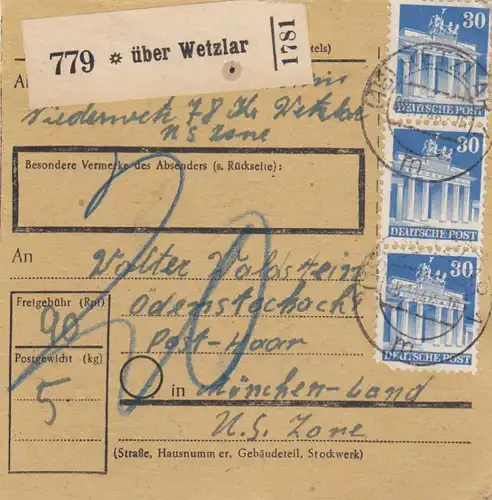 779 ✲ über Wetzlar
1781
tels)
Niederwetz 78 Kr. Wetzlar
US Zone
Besondere Vermerke des Absenders (s. Rückseite):
An Walter Waldstein
Ödenstockach
Post-Haar
in München-Land
U.S. Zone
(Straße, Hausnummer, Gebäudeteil, Stockwerk)
Freigebühr (Rpf)
90
Postgewicht (kg)
5
20
30
DEUTSCHE POST
30
DEUTSCHE POST
30
DEUTSCHE POST